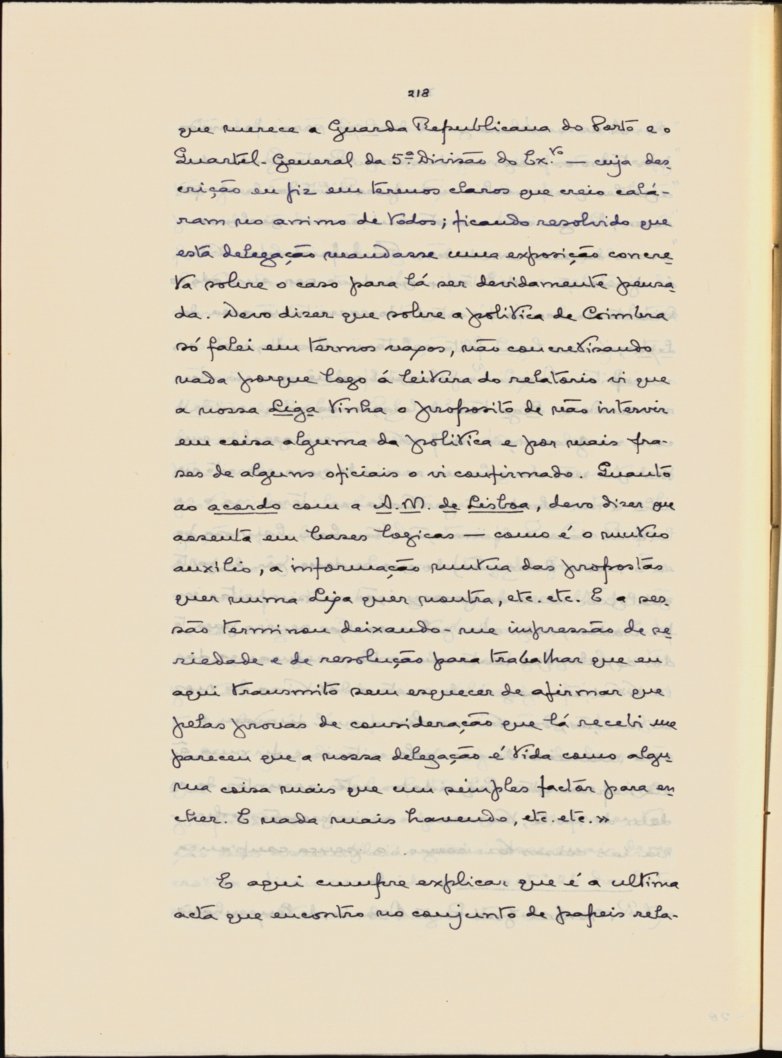 218
que merece a Guarda Republicana do Porto e o
Quartel-General da 5.ª Divisão do Ex.to — cuja des-
crição eu fiz em termos claros que creio calá-
ram no animo de todos; ficando resolvido que
esta delegação mandasse uma exposição concre-
ta sobre o caso para lá ser devidamente pensa-
da. Devo dizer que sobre a politica de Coimbra
só falei em termos vagos, não concretisando
nada porque logo á leitura do relatorio vi que
a nossa Liga tinha o proposito de não intervir
em coisa alguma da politica e por mais fra-
ses de alguns oficiais o vi confirmado. Quanto
ao acordo com a A.M. de Lisboa, devo dizer que
assenta em bases logicas — como é o mutuo
auxilio, a informação mutua das propostas
quer numa Liga quer noutra, etc. etc. E a ses-
são terminou deixando-me impressão de se-
riedade e de resolução para trabalhar que eu
aqui transmito sem esquecer de afirmar que
pelas provas de consideração que lá recebi me
pareceu que a nossa delegação é tida como algu-
ma coisa mais que um simples factor para en-
cher. E nada mais havendo, etc. etc.»
E aqui cumpre explicar que é a ultima
acta que encontro no conjunto de papeis rela-